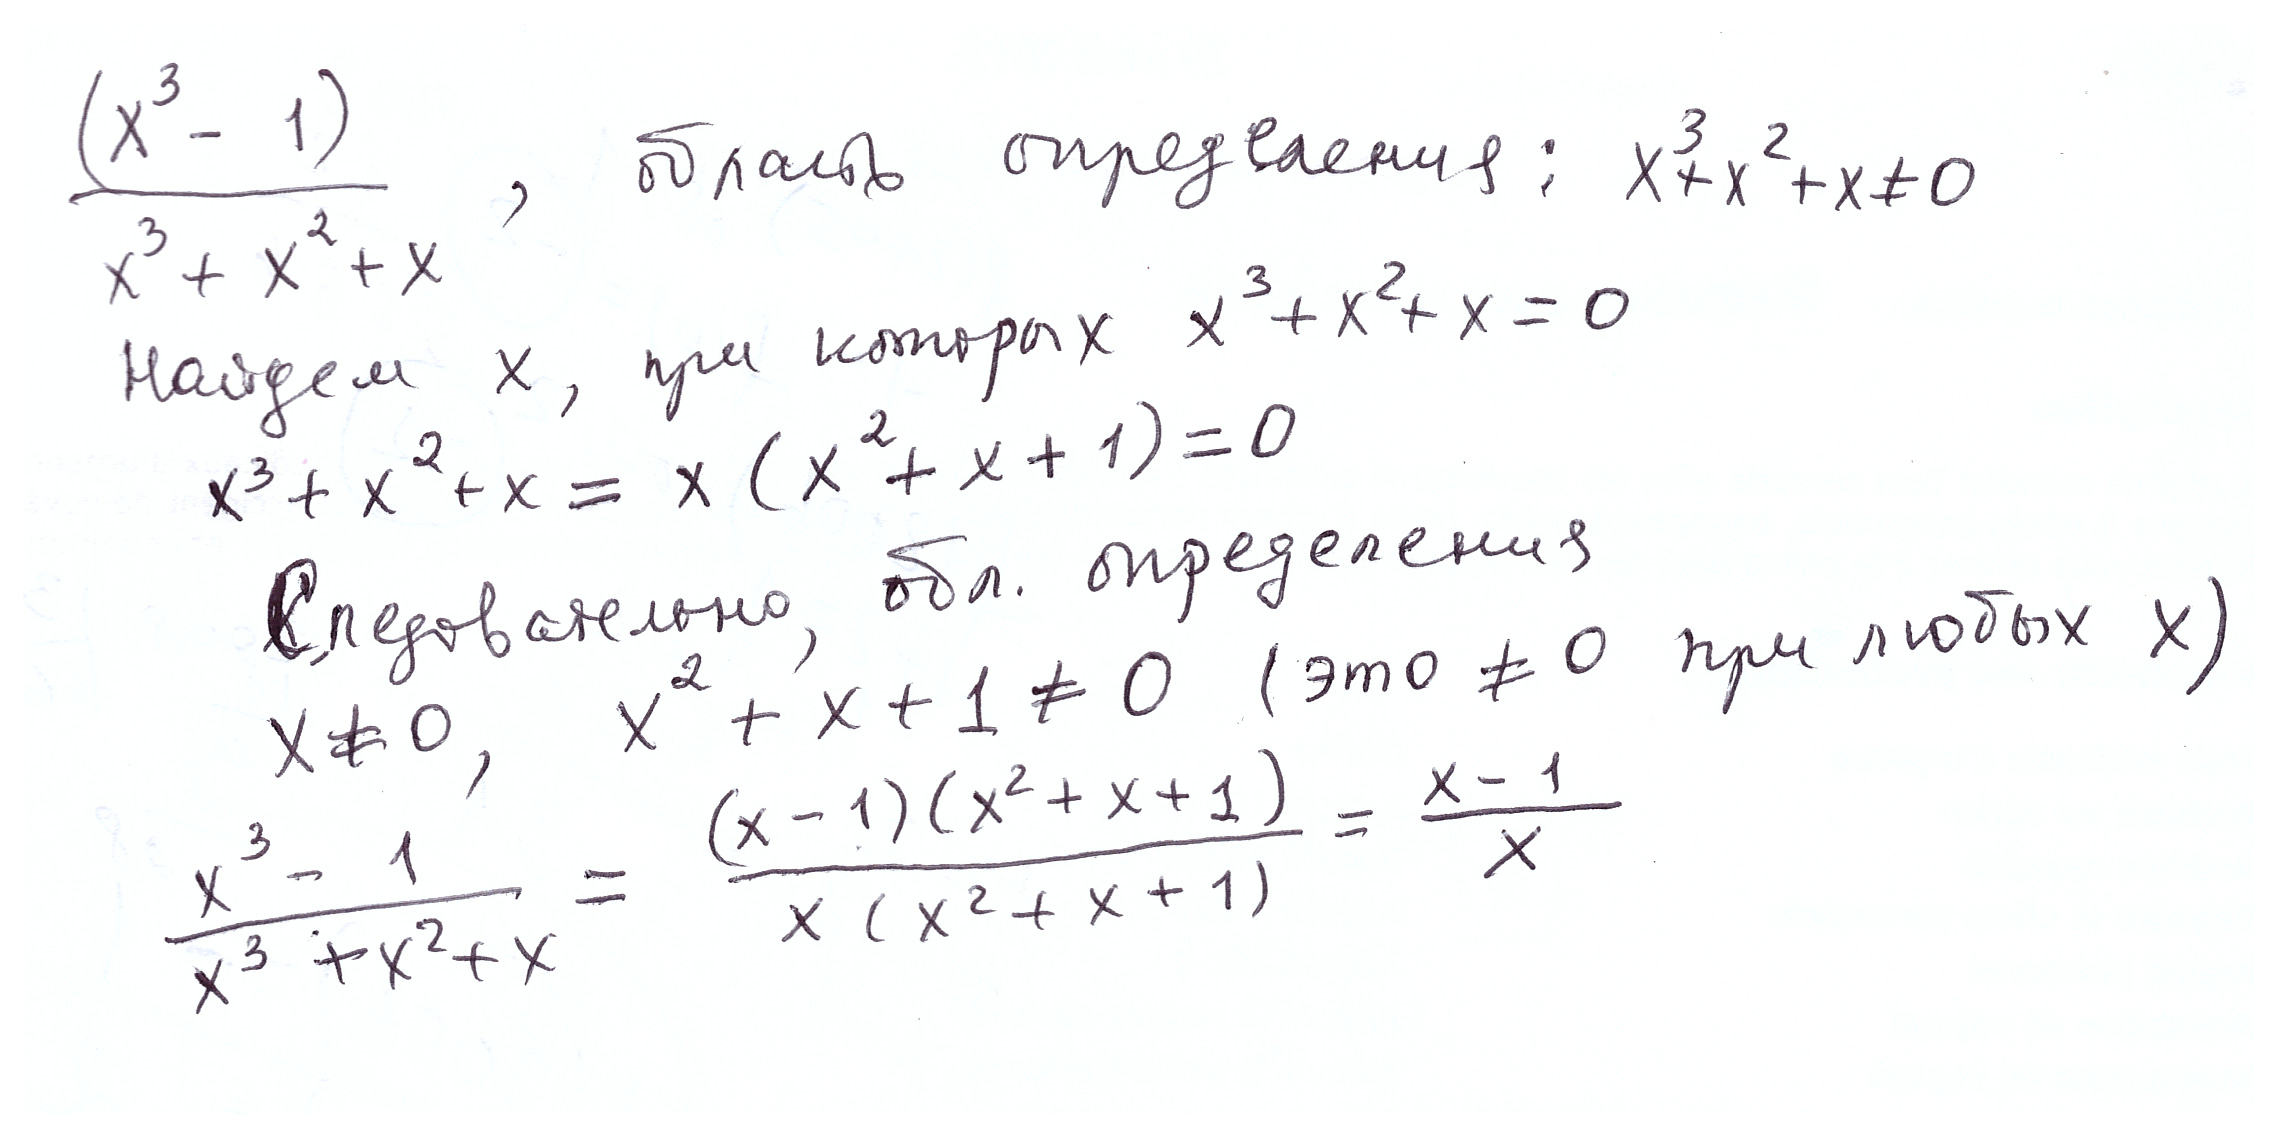 (x³ - 1) / (x³ + x² + x) , область определения : x³+x²+x≠0
Найдем x, при которых x³+x²+x=0
x³+x²+x = x(x²+x+1)=0
Следовательно, обл. определения
x≠0, x²+x+1≠0 (это ≠0 при любых x)
(x³ - 1) / (x³+x²+x) = (x-1)(x²+x+1) / x(x²+x+1) = (x-1) / x